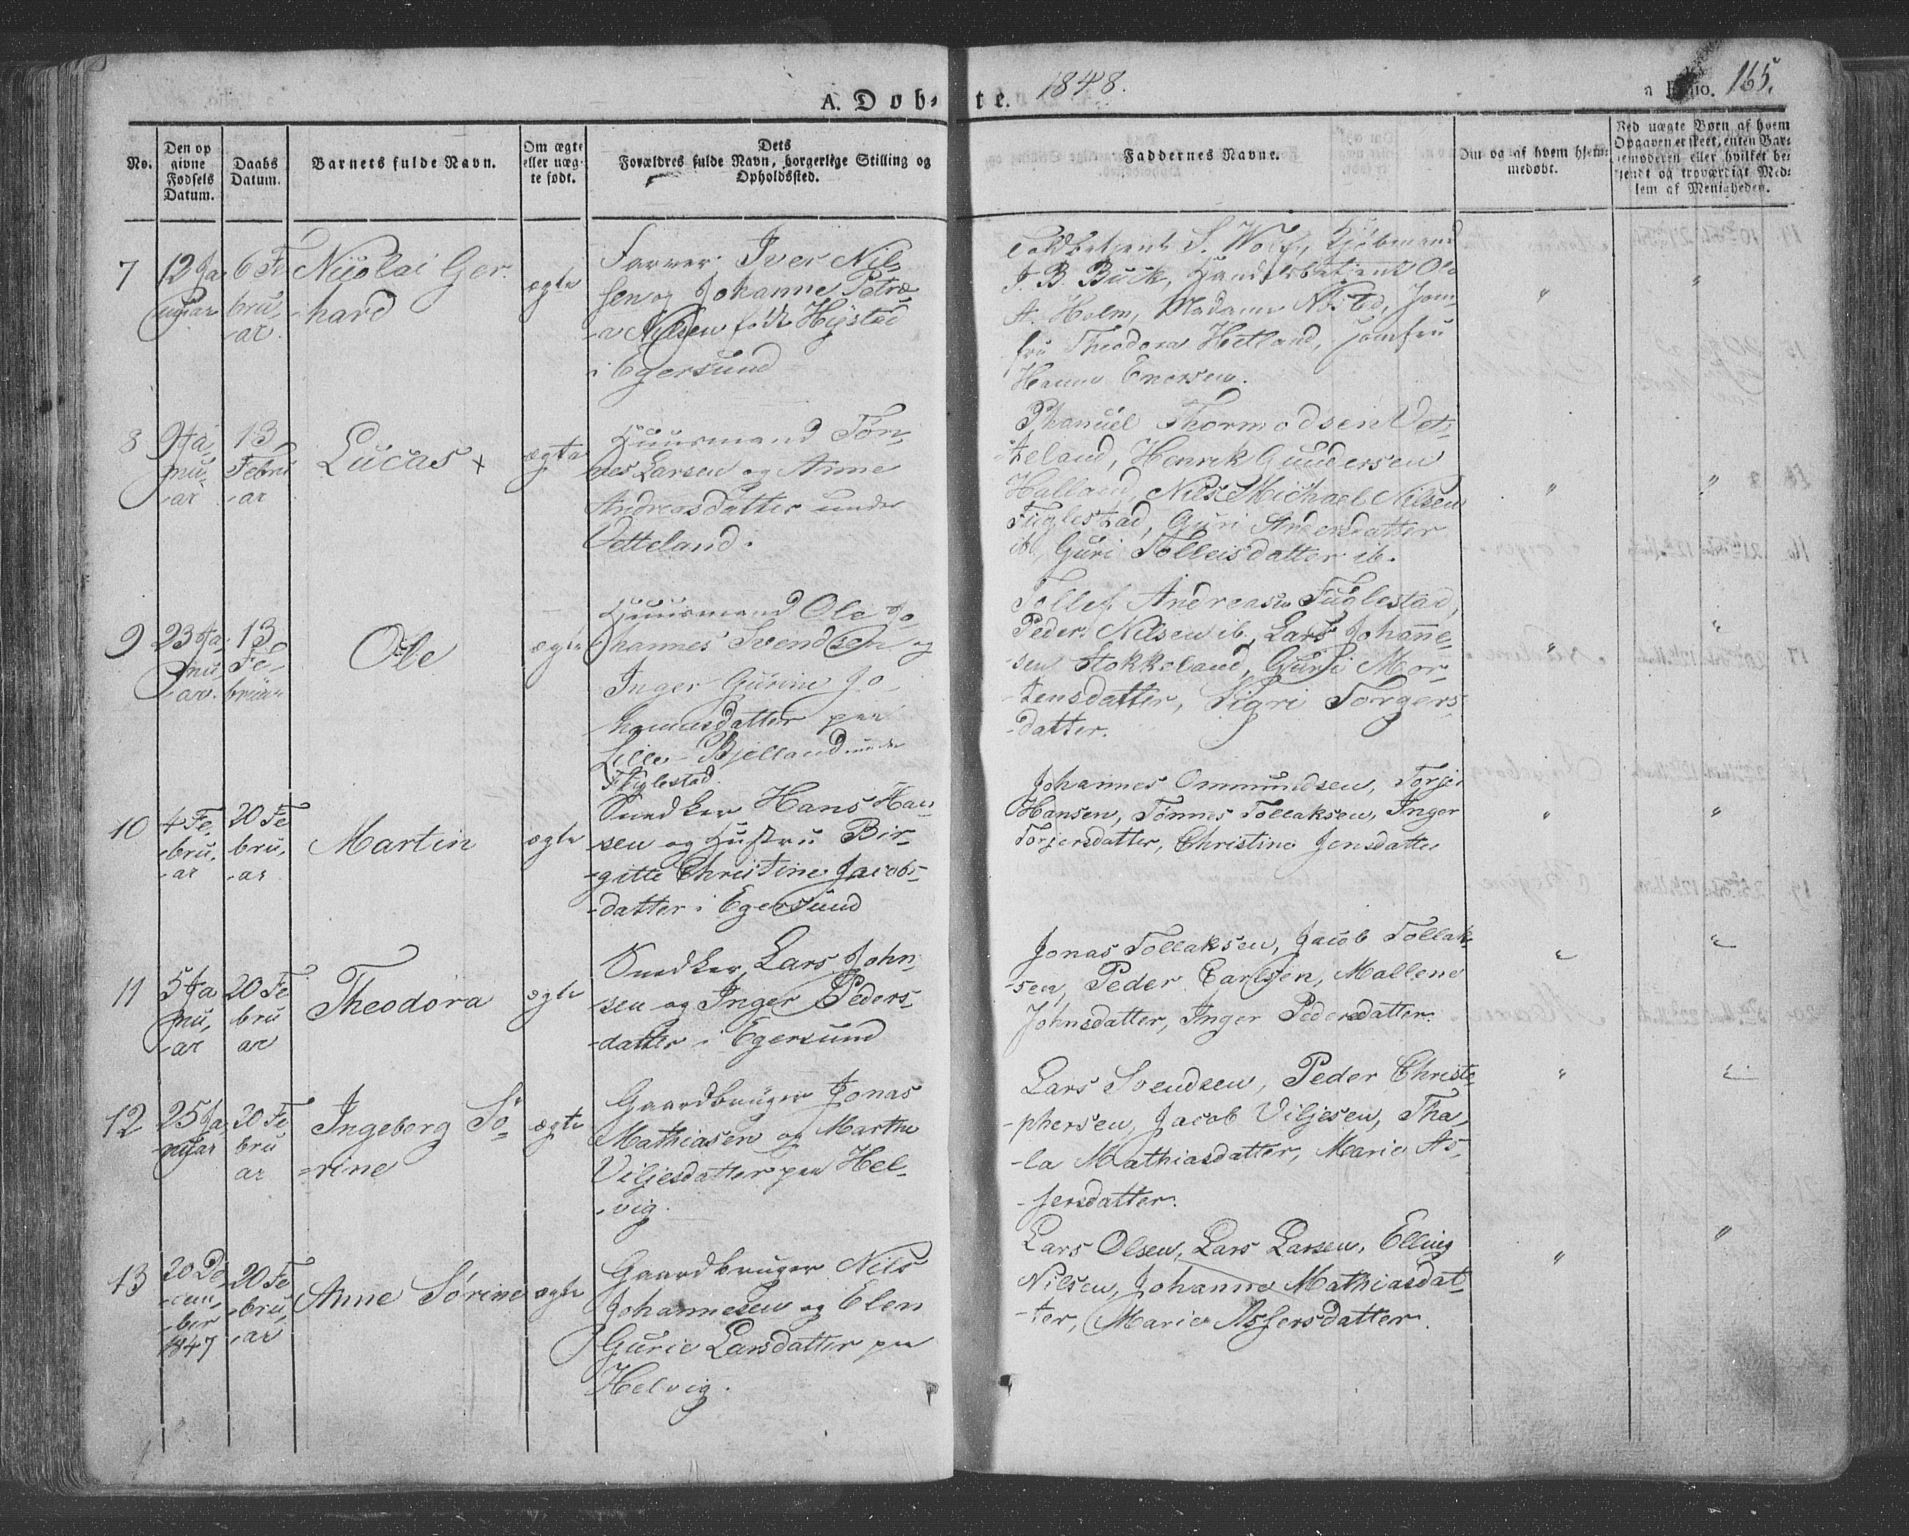 A. Døb-te. 1848.
n Folio. 165.
No.
Den op
givne
Fødsels
Datum.
Daabs
Datum.
Barnets fulde Navn.
Om ægte
eller uæg-
te født.
Dets
Forældres fulde Navn, borgerlige Stilling og
Opholdssted.
Faddernes Navne.
Om og af hvem hjem-
medøbt.
Ved uægte Børn af hvem
Opgaven er skeet, enten Bar-
nemoderen eller hvilket be-
kjendt og troværdigt Med-
lem af Menigheden.
7
12 Ja
nuar
6 Fe
bru,
-ar
Nicolai Ger-
-hard
ægte
Farver Iver Nil-
sen og Johanne Petre-
a Nilsen født Hystad
i Egersund
Toldbetjent S. Wolf, Kjøbmand
J. B. Buck, Handelsbetjent Ole
A. Holm, Madame, Jom-
fru Theodora Hetland, Jomfru
Hanne Enersen.
"
"
8
9 Ja,
nu,
-ar
13
Febru
-ar
Lucas +
ægte
Huusmand Tøn-
nes Larsen og Anne
Andreasdatter under
Vetteland.
Phanuel Thormodsen Vet-
teland, Henrik Gundersen
Halland, Nils Michael Nilsen
Fuglestad, Guri Andersdatter
ib, Guri Tolleisdatter ib.
"
"
9
23 Ja,
nu
-ar.
13
Fe,
bruar
Ole
ægte
Huusmand Ole Jo
hannes Svendsen og
Inger Gurine Jo
hannesdatter paa
Lille-Bjelland under
Fuglestad.
Tollef Andreasen Fuglestad,
Peder Nilsen ib, Lars Johanne-
sen Stokkeland, Guri Mor-
tensdatter, Sigri Torgers-
-datter.
"
"
10
4 Fe,
-bru,
-ar
20 Fe
bru,
-ar
Martin
ægte
Snedker Hans Han
sen og Hustru Bir-
-gitte Christine Jacobs-
-datter i Egersund
Johannes Ommundsen, Torjer
Hansen, Tønnes Tollaksen, Inger
Torjersdatter, Christine Jensdatter
"
"
11
5 Ja
nu,
-ar
20 Fe
bru
ar
Theodora
ægte
Snedker Lars John-
sen og Inger Peders-
-datter i Egersund
Jonas Tollaksen, Jacob Tollak-
-sen, Peder Carlsen, Mallene
Johnsdatter, Inger Pedersdatter.
"
"
12
25 Ja,
nuar
20 Fe
bru
ar
Ingeborg Sö-
-rine
ægte
Gaardbruger Jonas
Mathiasen og Marthe
Viljesdatter paa Hel-
-vig.
Lars Svendsen, Peder Christo-
-phersen, Jacob Viljesen, Tha,
-la Mathiasdatter, Marie As,
-sersdatter.
"
"
13
20 De
-cem,
-ber
1847
20 Fe
-bru,
-ar
Anne Sørine
ægte
Gaardbruger Nils
Johannesen og Elen
Gurie Larsdatter paa
Helvig.
Lars Olsen, Lars Larsen, Elling
Nilsen, Johanne Mathiasdat-
-ter, Marie Assersdatter.
"
"